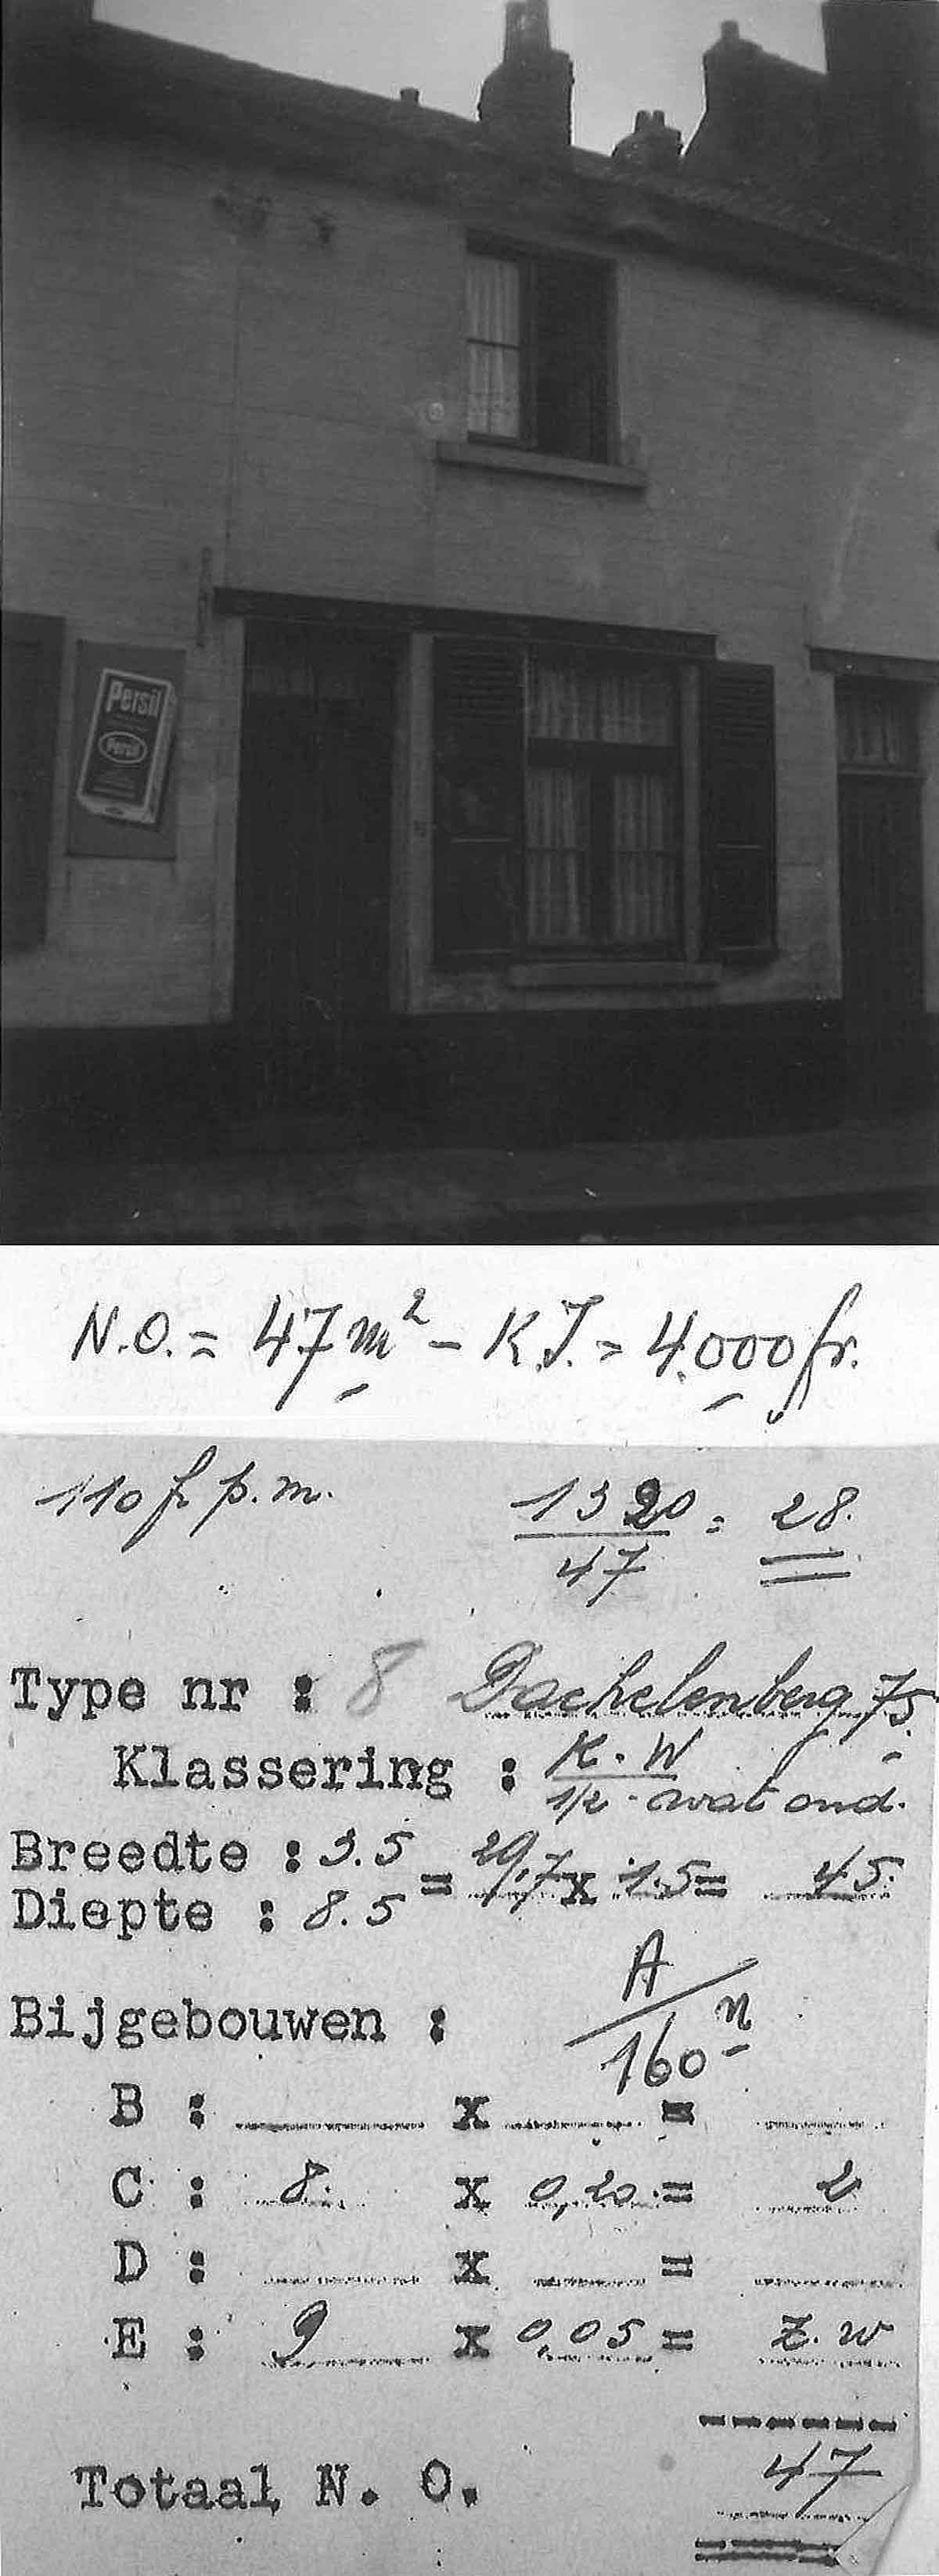 Persil
Persil
N.O. = 47 m² - K.I. = 4.000 fr.
110 fr p.m.
1320 = 28.
47
Type nr : 8 Dachelenberg 75.
Klassering : K. W
1/2 - wat oud.
Breedte : 3.5
= 29,7 x 1.5 = 45.
Diepte : 8.5
A
Bijgebouwen :
160 n
B : x =
C : 8. x 0,20 = 2
D : x =
E : 9 x 0,05 = z.w
47
Totaal N. O.